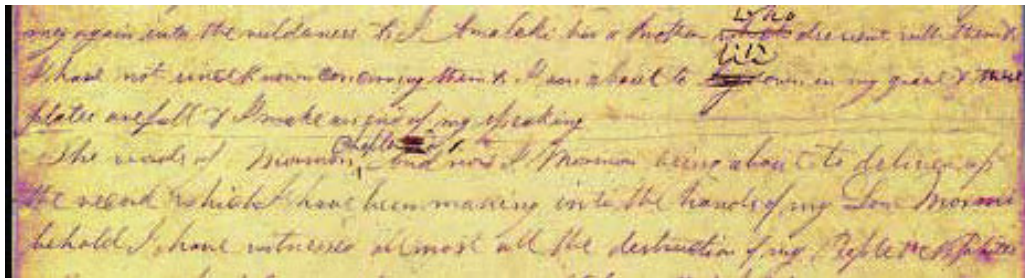 who
ney again into the wilderness & I Amaleki had a brother also went with them &
lie
I have not since known concerning them & I am about to down in my grave & these
plates are full & I make an end of my speaking
Chapter
The words of Mormon and now I Mormon being about to deliver up
the record which I have been making into the hands of my Son Moroni
behold I have witnessed almost all the destruction of my People the Nephites